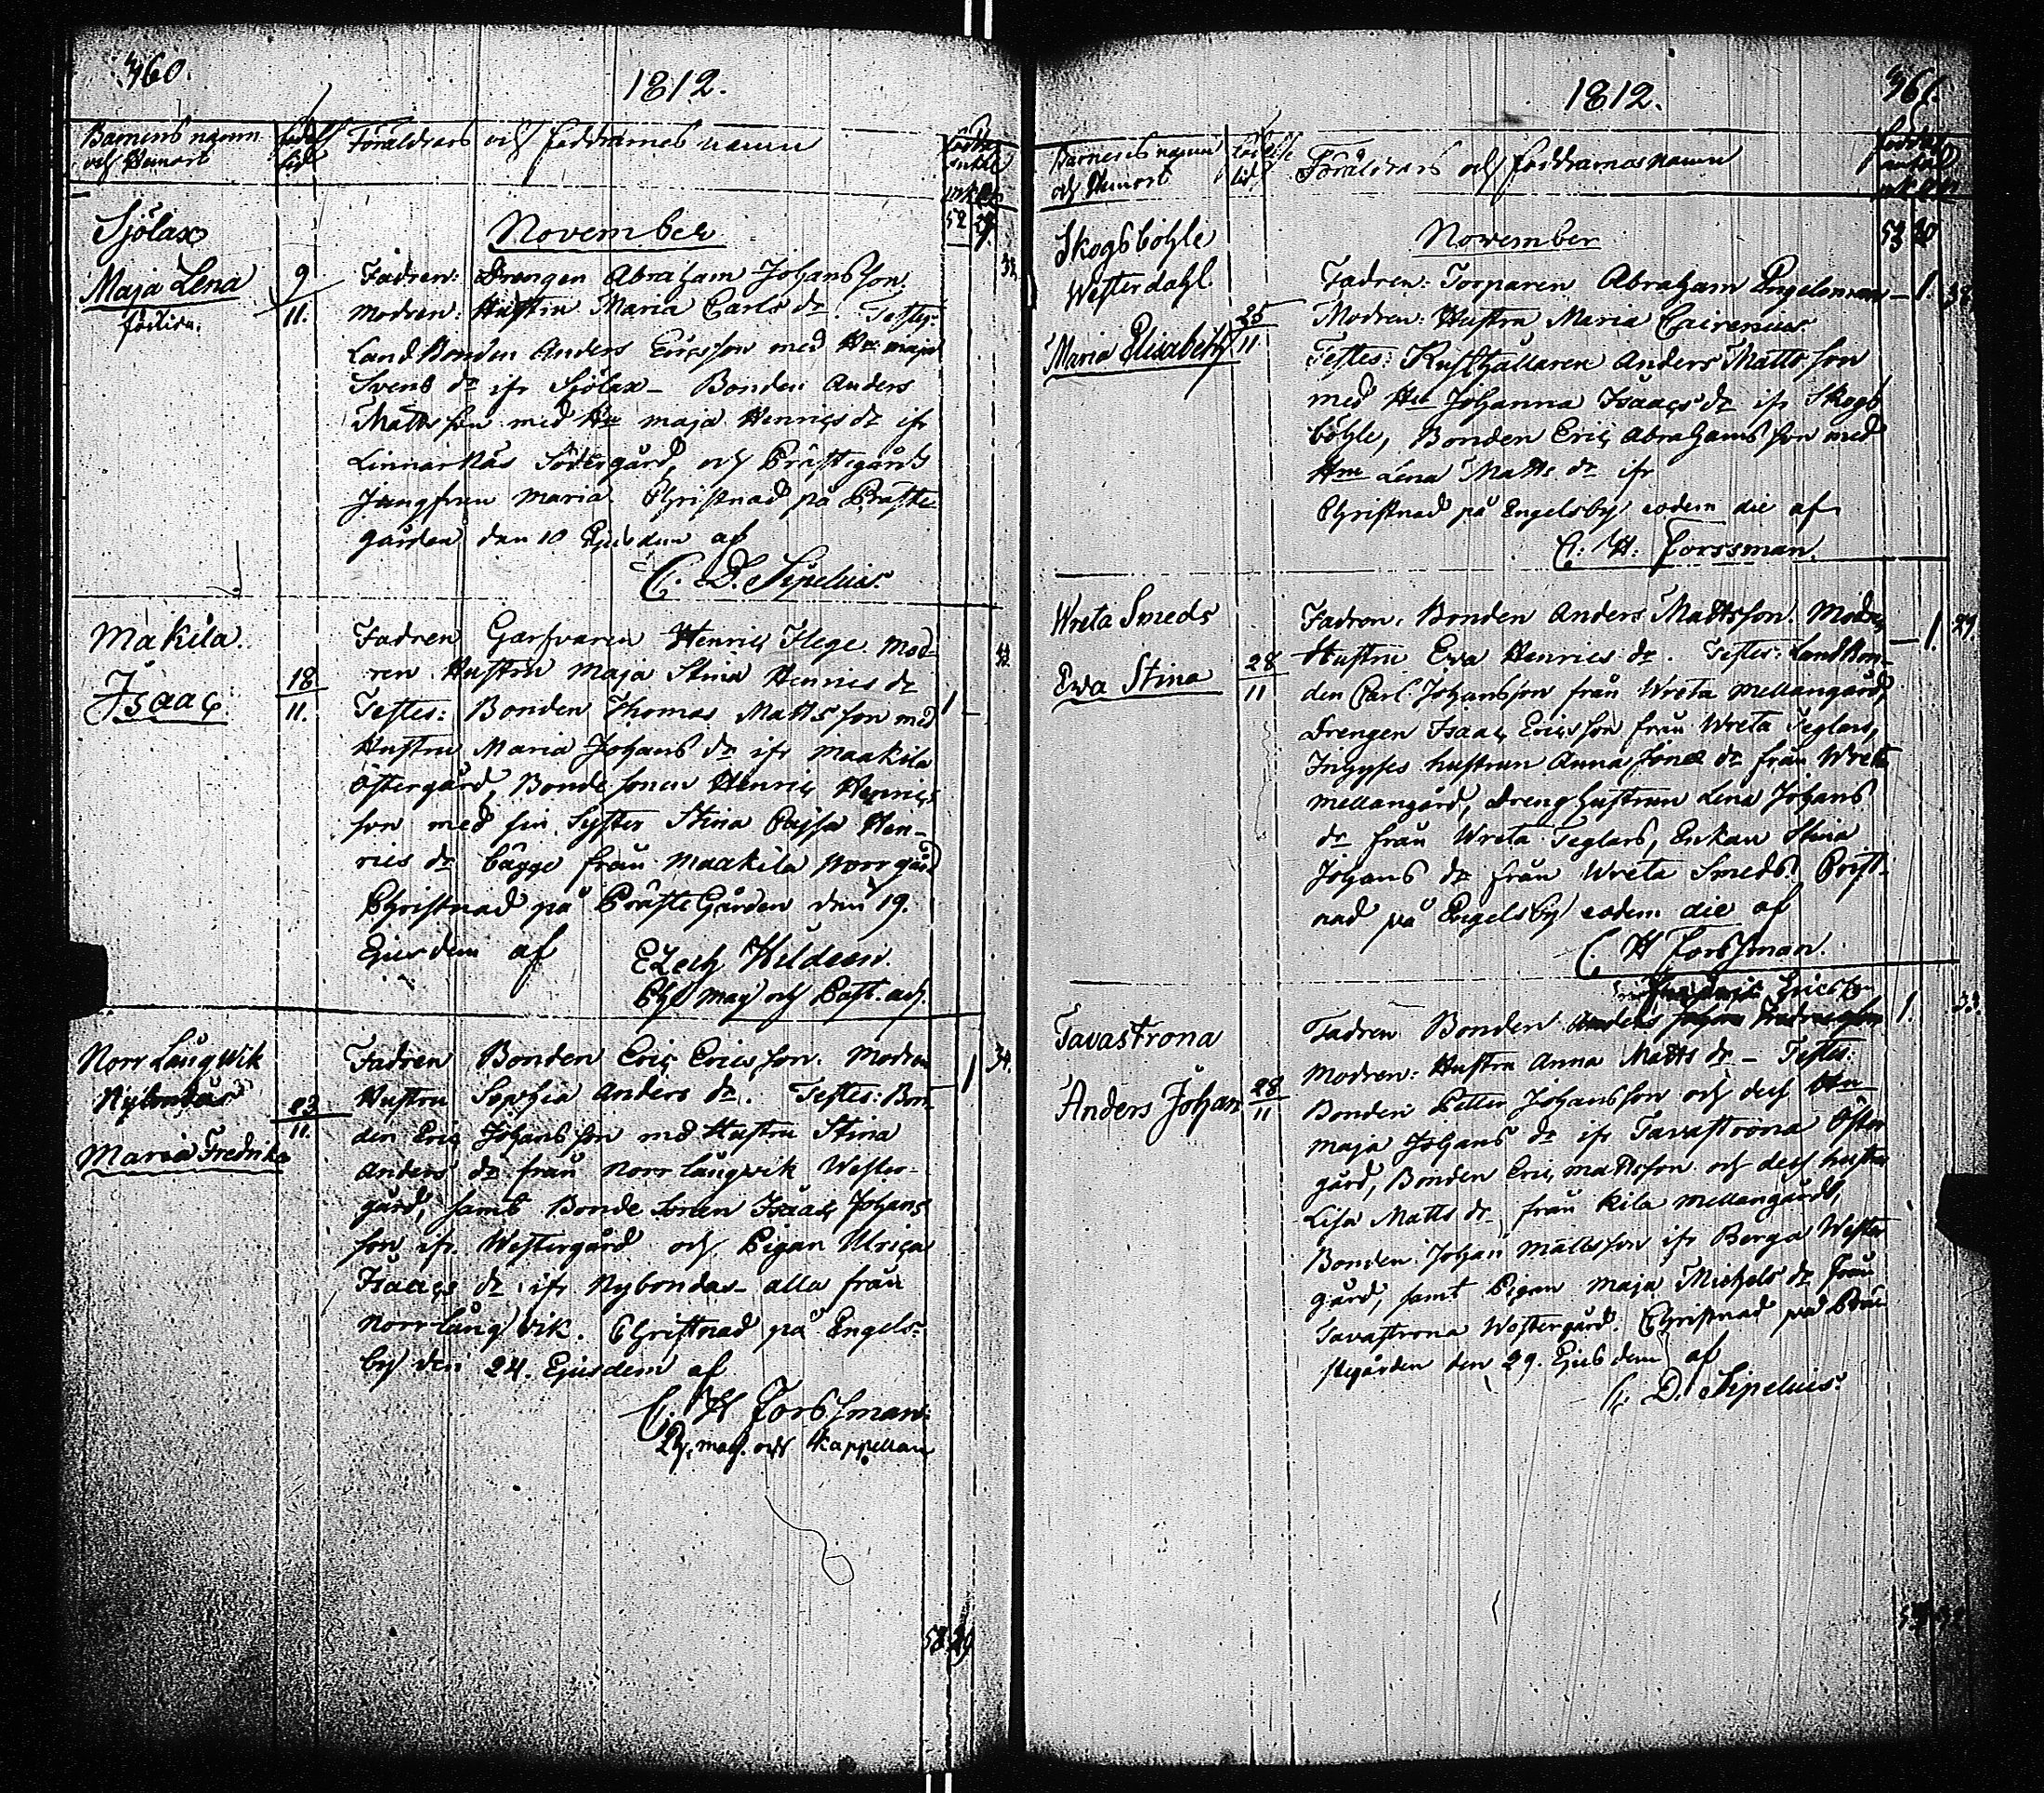 360.
1812.
Barnens namn
och Hemort
Föräldrars och faddrarnes namn
November
52 29
Sjölax
Maja Lena
9
11.
32
Fadren: Drengen Abraham Johansson.
Modren: Hustru Maria Carls dr. Testes:
Landbonden Anders Ericsson med Hu maja
Svens dr ifr Sjölax – Bonden Anders
Mattsson med Hu maja Henrics dr ifr
Linnarnäs Södergård, och Prästegårds
Jungfrun Maria. Christnad på Präste-
gården den 10 Ejusdem af
C. D. Sipelius.
Makila.
Isaac.
18
11.
Fadren Garfvaren Henric Flege. Mod-
ren Hustru Maja Stina Henrics dr
Testes: Bonden Thomas Mattsson med
Hustru Maria Johans dr ifr Maakila
Östergård, Bondesonen Henric Henrics
son med sin Syster Stina Cajsa Hen-
rics dr bägge från Maakila Norrgård
Christnad på PrästeGården den 19.
Ejusdem af
1 –
Norr Långvik
Nybondas
Maria Fredrika
23
11.
34.
Fadren Bonden Eric Ericsson. Modren
Hustru Sophia Anders dr. Testes: Bon-
den Eric Johansson med Hustru Stina
Anders dr från Norrlångvik Wester-
gård, samt Bonde Sonen Isaac Johans
son ifr. Westergård och Pigan Ulrica
Isaacs dr ifr Nybondas – alla från
Norrlångvik. Christnad på Engels-
by den 24. Ejusdem af
– 1
C. H Forssman.
Ph. mag. och Kappellan
53 29
361.
1812.
Barnens namn
och Hemort
Föräldrars och faddrarnas namn
November
53 30
Skogsböhle
Westerdahl
Maria Elisabeth
25
11
Fadren: Torparen Abraham Engelsman
Modren: Hustru Maria Cairenius.
Testes: Rusthållaren Anders Mattsson
med Hu Johanna Isaacs dr ifr Skogs
böhle, Bonden Eric Abrahamsson med
Hru Lena Matts dr ifr
Christnad på Engelsby eodem die af
C: H: Forssman.
– 1. 38.
Wreta Smeds
Ewa Stina
28
11
Fadren: Bonden Anders Mattsson. Modren
Hustru Ewa Henrics dr. Testes: Landbon-
den Carl Johansson från Wreta Mellangård,
Drengen Isaac Ericsson från Wreta Teglars,
Inhyses hustrun Anna Jöns dr från Wreta
mellangård, Dreng hustrun Lena Johans
dr från Wreta Teglars, Enkan Stina
Johans dr från Wreta Smeds. Crist-
nad på Engelsby eodem die af
C. H Forssman.
– 1. 29
Tavastrona
Anders Johan
28
11
Ericsson
Fadren Bonden
Modren: Hustru Anna Matts dr – Testes:
Bonden Petter Johansson och dess Hu
maja Johans dr ifr Tavastrona Öster
gård, Bonden Eric Mattsson och dess hustru
Lisa Matts dr från Kila mellangård,
Bonden Johan Mattsson ifr Berga Wester
gård, samt Pigan Maja Michels dr från
Tavastrona Westergård. Christnad på Prä-
stegården den 29. Ejusdem af
C. D. Sipelius.
1. 33.